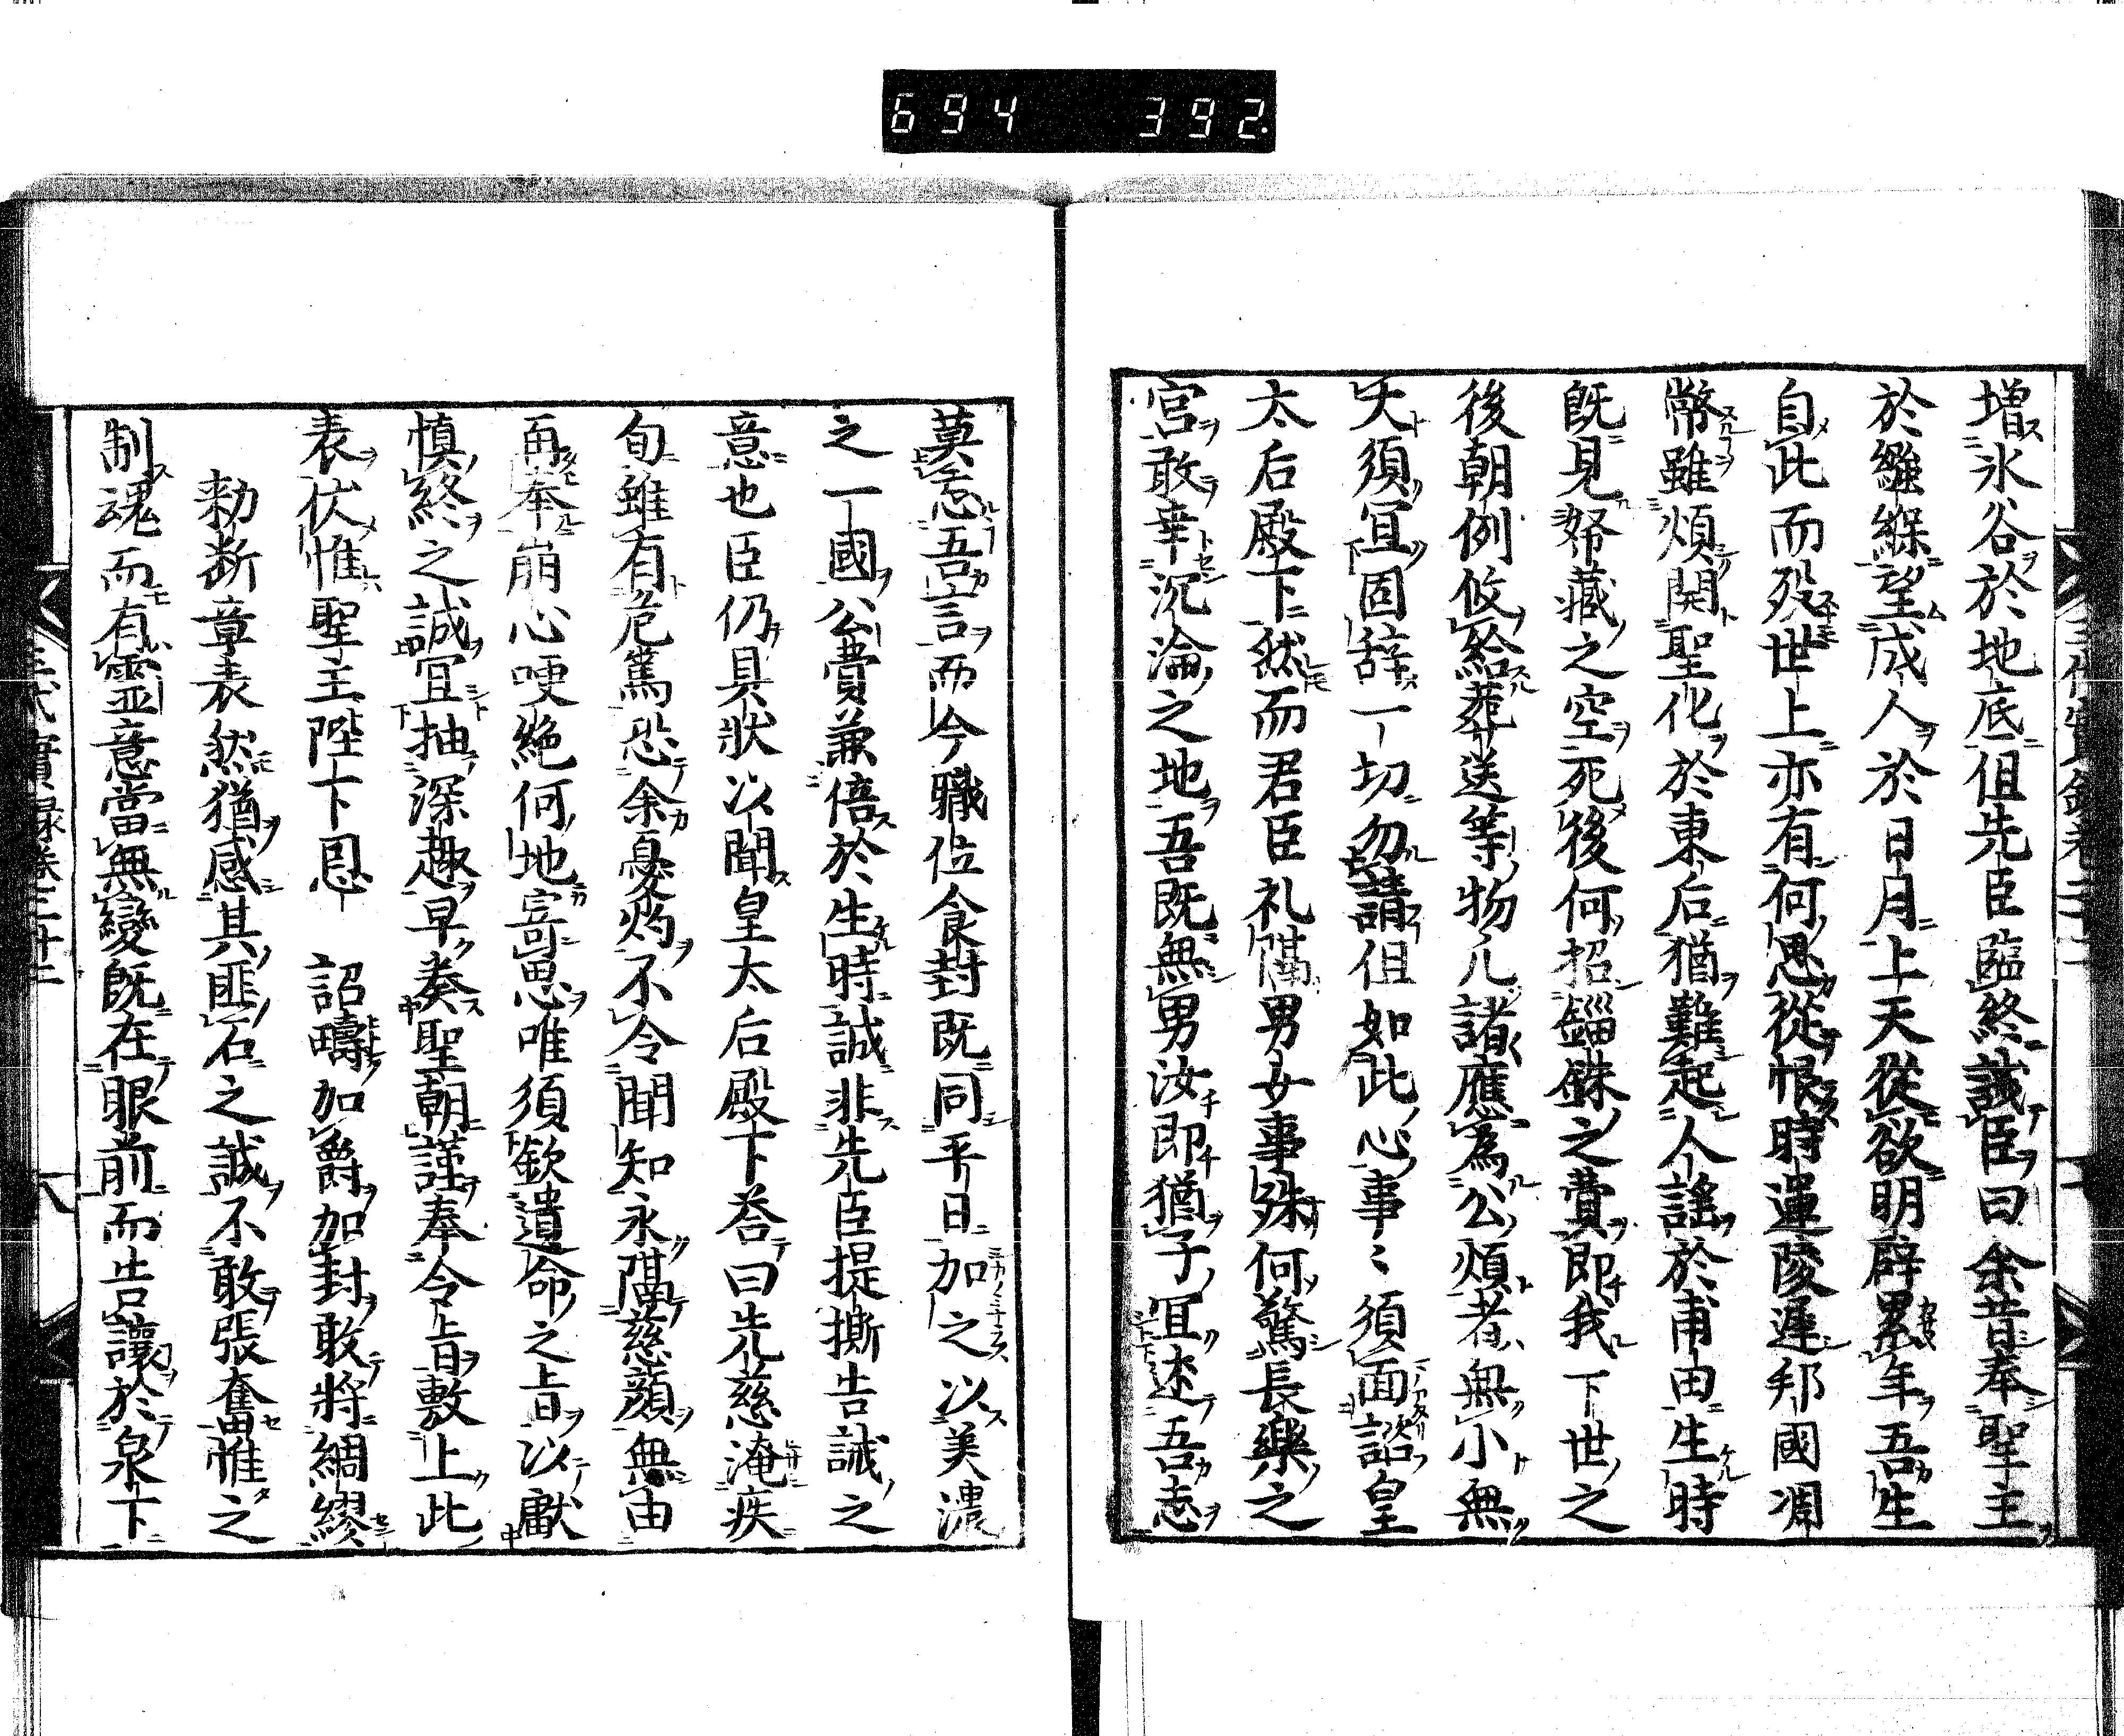 694 392
増氷谷於地底但先臣臨終誡臣曰余昔奉聖主
於繦緥望成人於日月上天從欲明辟累年吾生
自此而歿世上亦有何思從恨時運陵遲邦國凋
幣雖煩関聖化於東后猶難起人謡於甫由生時
既見帑藏之空死後何招錙銖之費即我下世之
後朝例攸給葬送等物凢諸應為公煩者無小無
大須冝固辞一切勿請但如此心事〻須面諮皇
太后殿下然而君臣礼隔男女事殊何驚長樂之
宮敢幸沉淪之地吾既無男汝即猶子冝述吾志
莫忘吾言而今職位食封既同平日加之以美濃
之一國公費兼倍於生時誠非先臣提撕告誡之
意也臣仍具狀以聞皇太后殿下荅曰先慈淹疾
旬雖有危篤恐余憂灼不令聞知永隔慈顔無由
再奉崩心哽絶何地寄思唯須欽遺命之旨以獻
慎終之誠冝抽深趣早奏聖朝謹奉令旨敷上此
表伏惟聖主陛下恩 詔疇加爵加封敢將綢繆
勅断章表然猶感其匪石之誠不敢張奮惟之
制魂而有靈意當無變既在眼前而告讓於泉下
三代實録卷三十二 八